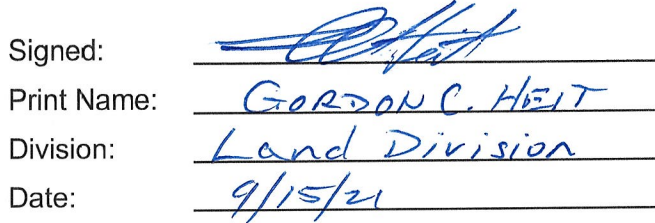 Signed:
Print Name: GORDON C. HEIT
Division: Land Division
Date: 9/15/21